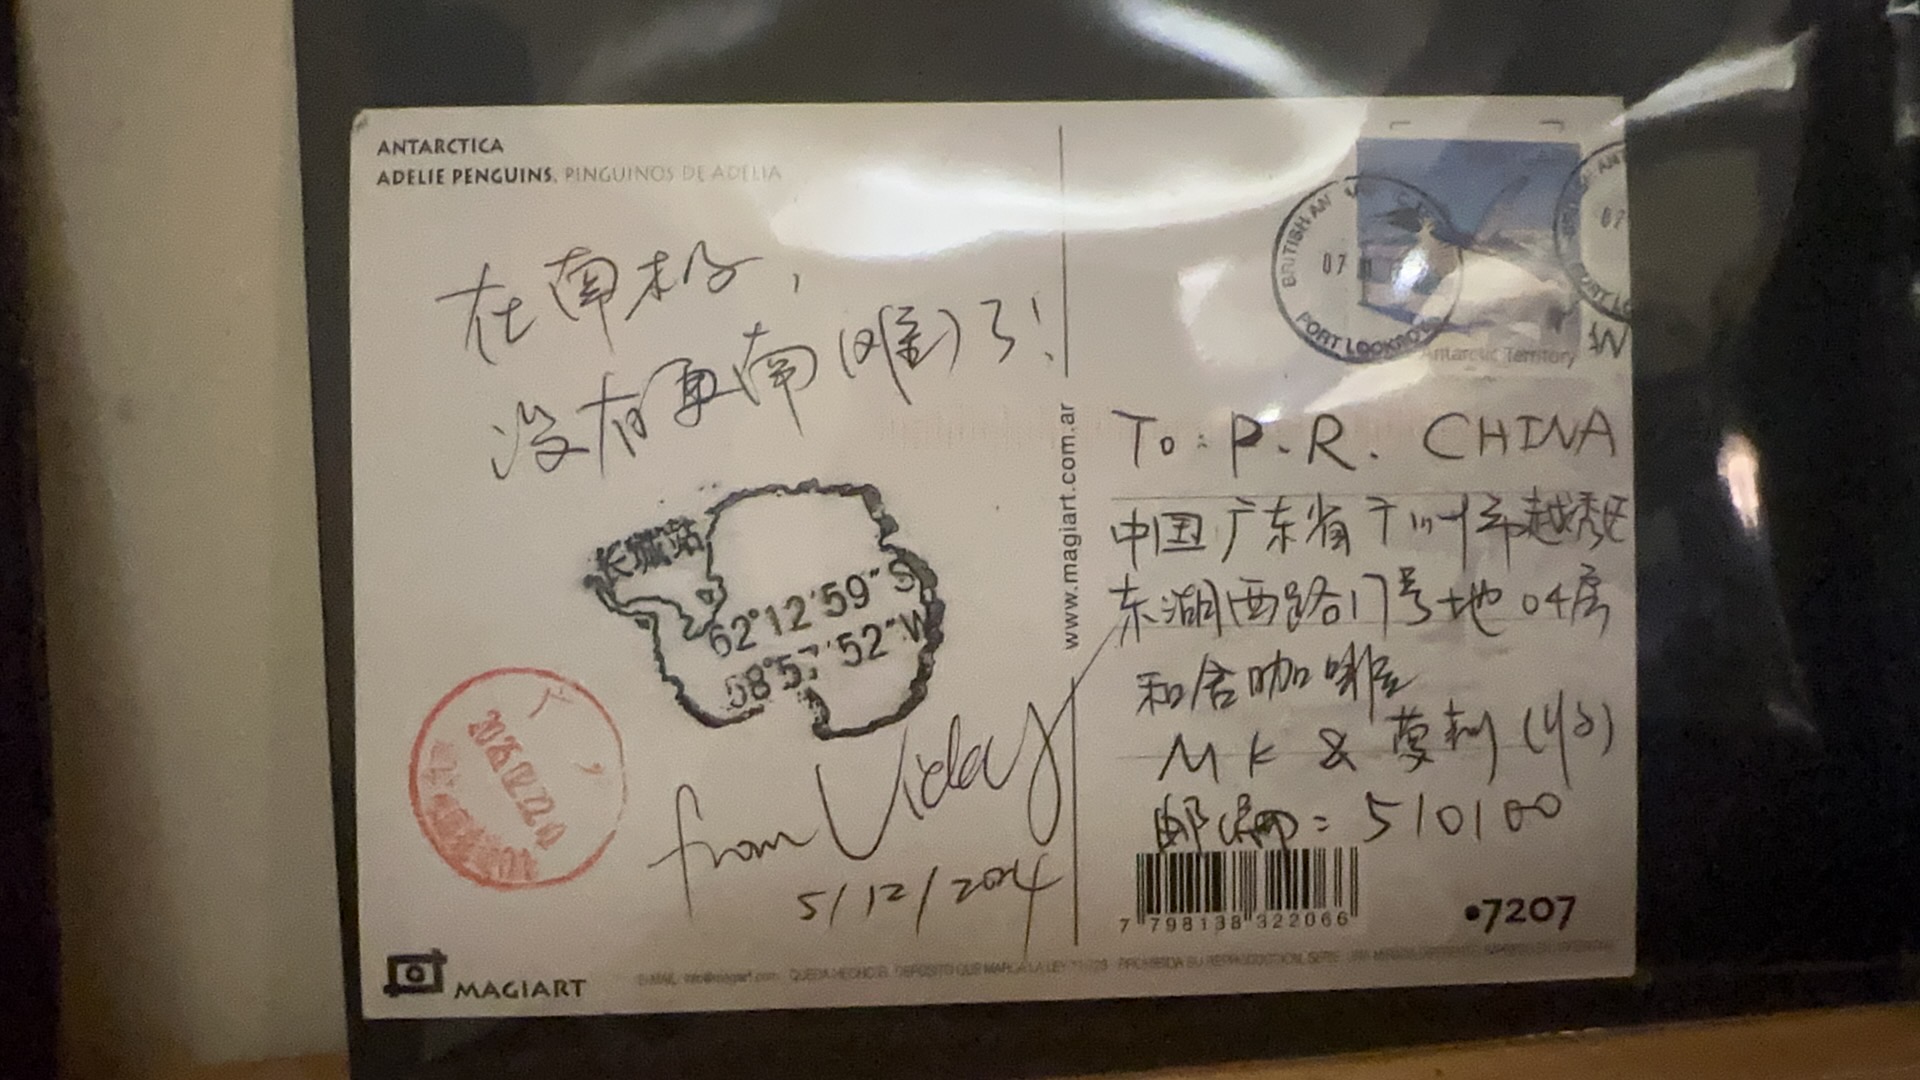 ANTARCTICA
ADELIE PENGUINS, PINGUINOS DE ADELIA
在南极，
没有更南(难)了！
长城站
62°12'59"S
58°57'52"W
from Viday
5/12/2024
MAGIART
www.magiart.com.ar
BRITISH AN
07
PORT LOCKROY
Antarctic Territory
To: P.R. CHINA
中国广东省广州市越秀区
东湖西路17号地04房
和舍咖啡
MK & 萝莉
邮编: 510100
7 798138 322066
•7207